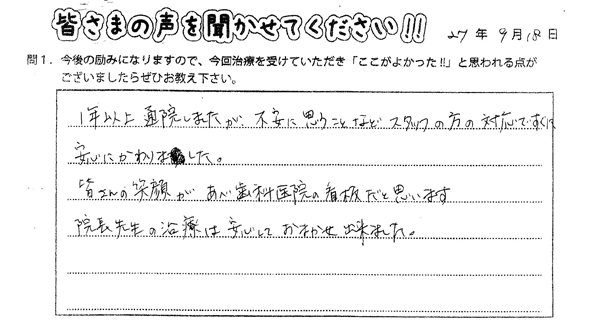 皆さまの声を聞かせてください!!
27年9月18日
問1．今後の励みになりますので、今回治療を受けていただき「ここがよかった!!」と思われる点が
ございましたらぜひお教え下さい。
1年以上通院しましたが、不安に思うことなどスタッフの方の対応ですぐに
安心にかわりました。
皆さんの笑顔があべ歯科医院の看板だと思います
院長先生の治療は安心しておまかせ出来ました。